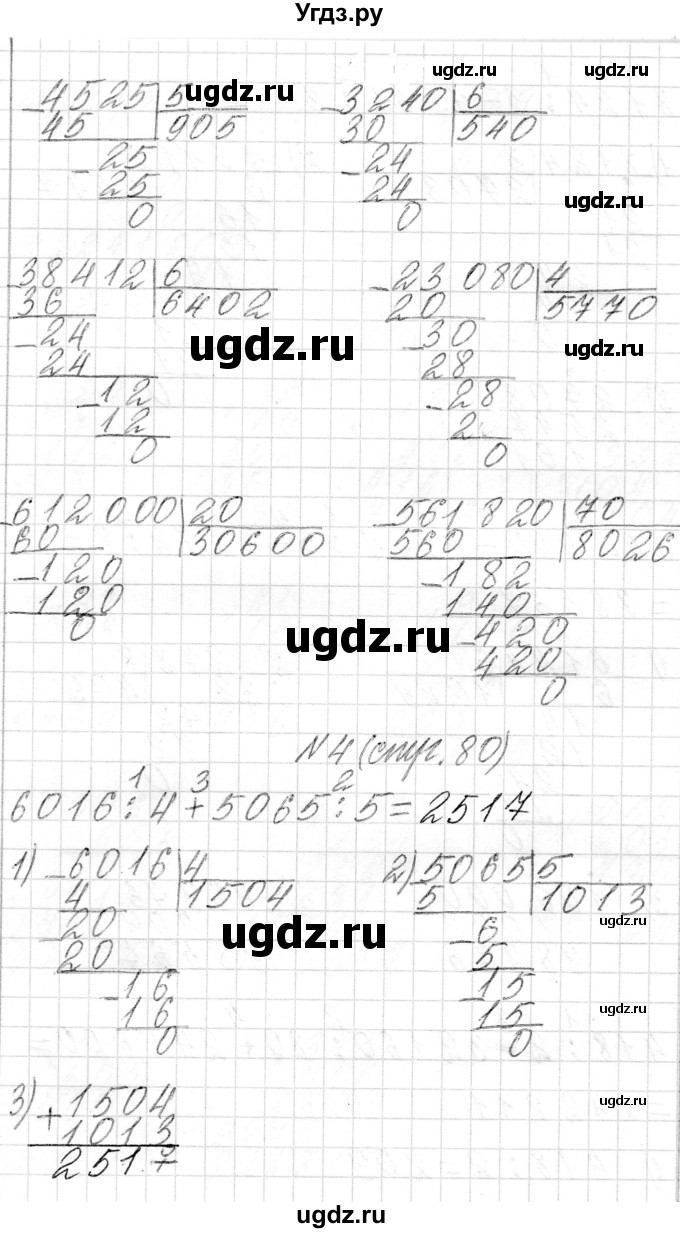 Угдз.ру
4525 | 5
45 | 905
-25
25
0
-3240 | 6
30 | 540
-24
24
0
38412 | 6
36 | 6402
-24
24
-12
12
0
-23 080 | 4
20 | 5770
-30
28
-28
2
0
-612 000 | 20
60 | 30600
-120
120
0
-561 820 | 70
560 | 8026
-182
140
-420
420
0
№4 (стр. 80)
1 3 2
6016:4+5065:5=2517
1) -6016 | 4
4 | 1504
-20
20
-16
16
0
2) 5065 | 5
5 | 1013
-6
5
-15
15
0
3) +1504
1013
2517
ugdz.ru
ugdz.ru
ugdz.ru
ugdz.ru
ugdz.ru
ugdz.ru
ugdz.ru
ugdz.ru
ugdz.ru
ugdz.ru
ugdz.ru
ugdz.ru